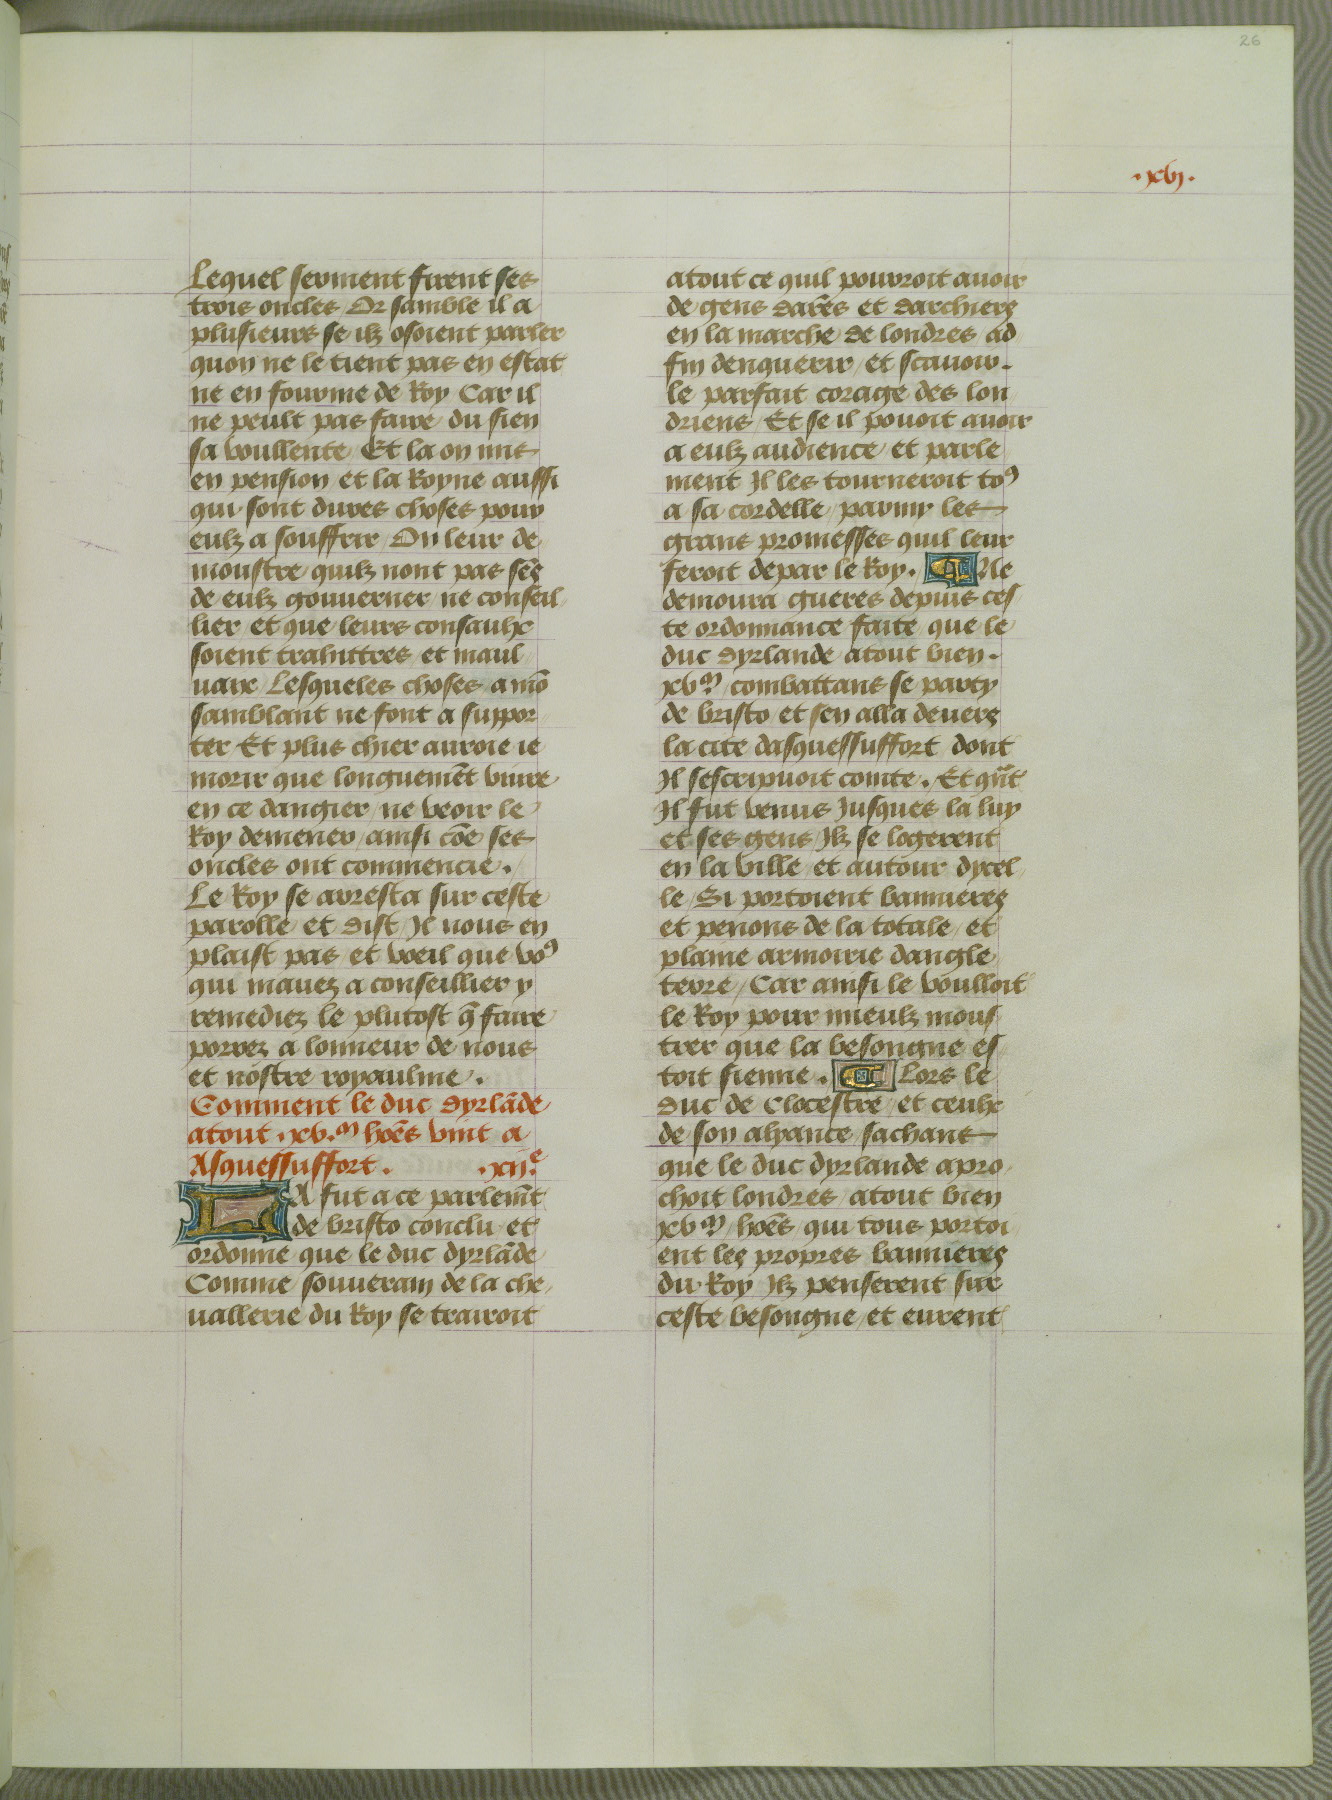 26
.xvj.
Lequel serment firent ses
trois oncles Or samble il a
plusieurs se ilz osoient parler
quon ne le tient pas en estat
ne en fourme de Roy Car il
ne peult pas faire du sien
sa voullente Et la on mis
en pension et la Royne aussi
qui sont dures choses pour
eulz a souffrir On leur de
moustre quilz nont pas sēs
de eulz gouverner ne conseil
lier et que leurs consaulx
soient trahittres et maul
uaix Lesqueles choses a mō
samblant ne font a suppor
ter Et plus chier auroie ie
morir que longuemēt viure
en ce dangier ne veoir le
Roy demener ainsi cōe ses
oncles ont commencie.
Le Roy se arresta sur ceste
parolle et dist Il nous en
plaist pas et voeil que voꝯ
qui mauez a conseillier y
remediez le plutost q̄ faire
porrez a lonneur de nous
et nostre royaulme.
Comment le duc dyrlāde
atout .xv.m hōes vint a
Asquessuffort. .xij.e
LA fut a ce parlemēt
de bristo conclu et
ordonne que le duc dyrlāde
Comme souuerain de la che
uallerie du Roy se trairoit
atout ce quil pourroit auoir
de gens darēs et darchiers
en la marche de londres ad
fin denquerir et scauoir.
le parfait corage des lon
driens Et se il pouoit auoir
a eulz audience et parle
ment Il les tourneroit toꝯ
a sa cordelle parmy les
grans promesses quil leur
feroit depar le Roy. Ne
demoura gueres depuis ces
te ordonnance faite que le
duc dyrlande atout bien.
xvm combattans se party
de bristo et sen alla devers
la cite dasquessuffort dont
Il sescripuoit comte. Et qūt
Il fut venus Iusques la luy
et ses gens Ilz se logerent
en la ville et autour dycel
le Si portoient bannieres
et penons de la totale et
plaine armoirie dangle
terre Car ainsi le voulloit
le Roy pour mieulz mous
trer que la besongne es
toit sienne. Lors le
duc de Clocestre et ceulx
de son alyance sachans
que le duc dyrlande apro
choit londres atout bien
xvm hōes qui tous portoi
ent les propres bannieres
du Roy Ilz penserent sur
ceste besongne et eurent